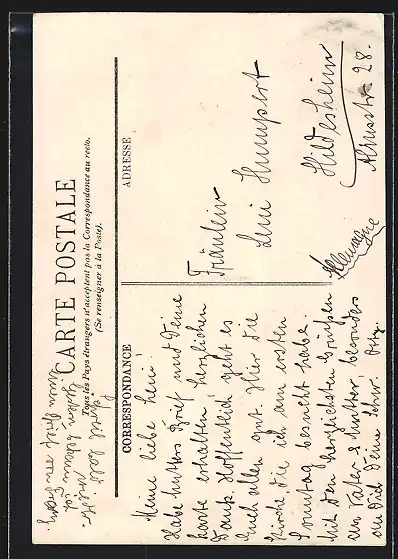 CARTE POSTALE
Tous les Pays étrangers n'acceptent pas la Correspondance au recto.
(Se renseigner à la Poste).
CORRESPONDANCE
ADRESSE
Meine liebe Leni!
Habe Mutters Brief und Deine
Karte erhalten, herzlichen
Dank. Hoffentlich geht es
Euch allen gut. Hier die
Kirche die ich am ersten
Sonntag besucht habe.
Mit den herzlichsten Grüßen
an Vater & Mutter besonders
an Dich Deine Schw.
Fräulein
Leni Humpert
Hildesheim
28.
Allemagne